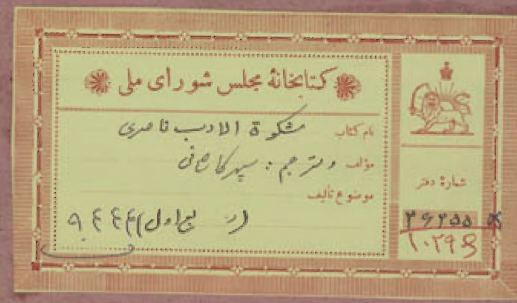 کتابخانهٔ مجلس شورای ملی
نام کتاب مشکوة الادب ناصری
مؤلف و مترجم : سپهر کاشانی
موضوع تألیف
شمارهٔ دفتر
۲۶۲۵۵
۱۰۲۹۶